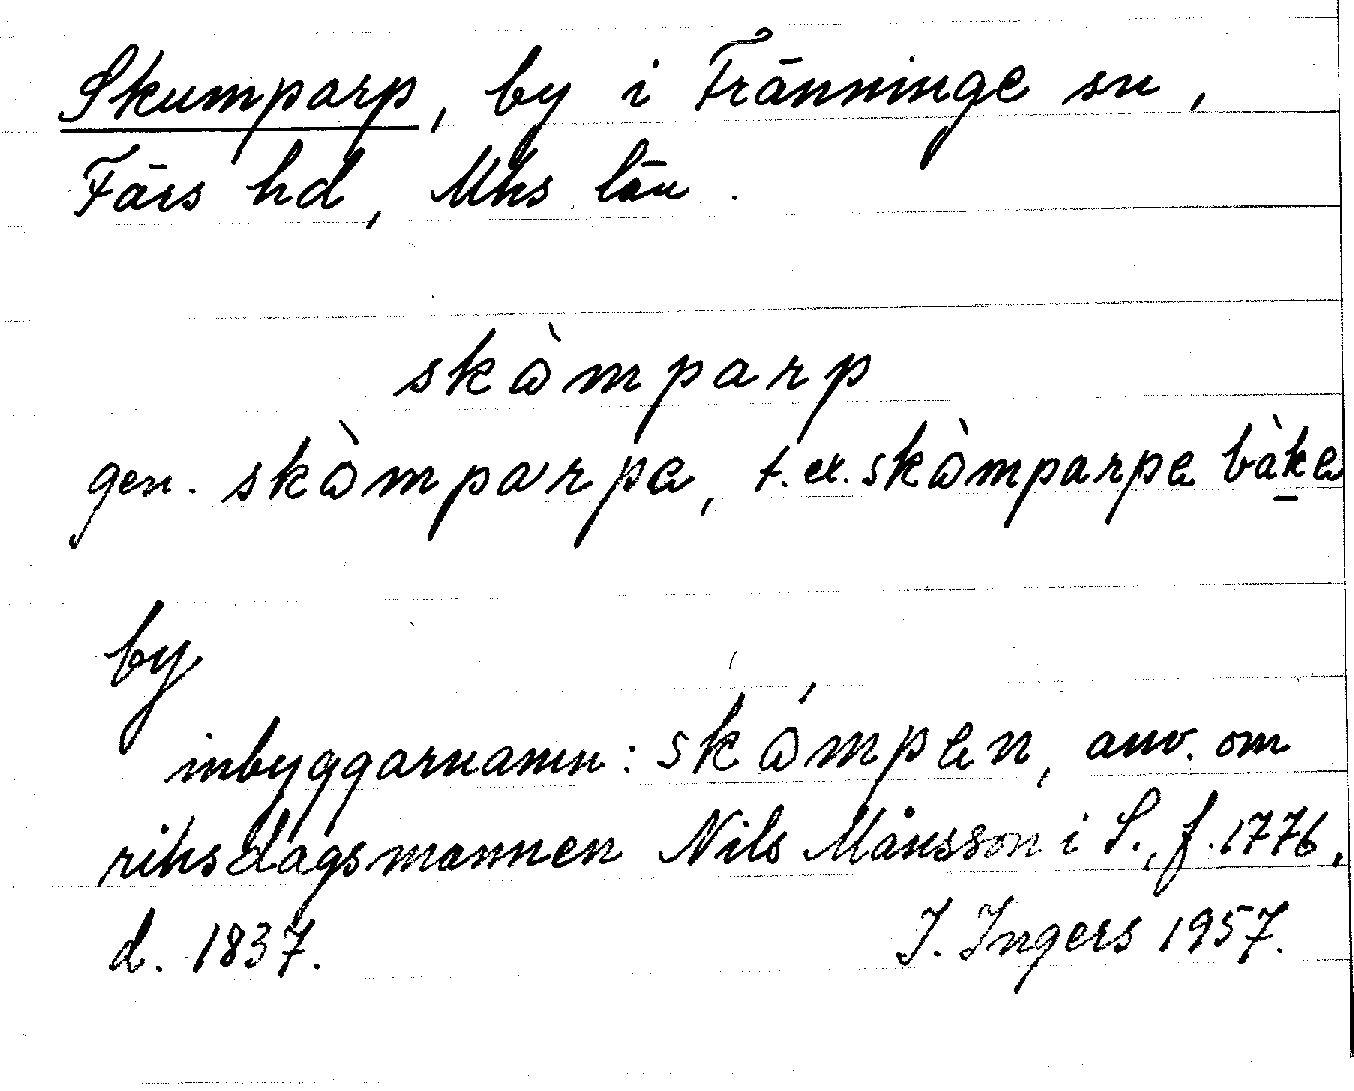 Skumparp, by i Tränninge sn,
Färs hd, Mhs län.
skòmparp
gen. skòmparpa, t. ex. skòmparpa bàka
by
inbyggarnamn: skómpen, anv. om
riksdagsmannen Nils Månsson i S., f. 1776,
d. 1837. I. Ingers 1957.